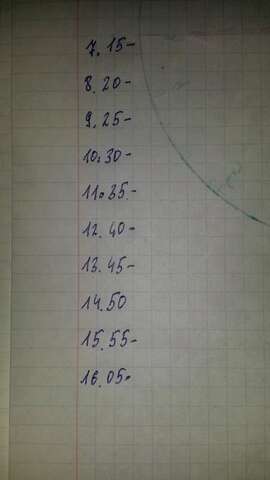 7.15-
8.20-
9.25-
10.30-
11.35-
12.40-
13.45-
14.50
15.55-
16.05